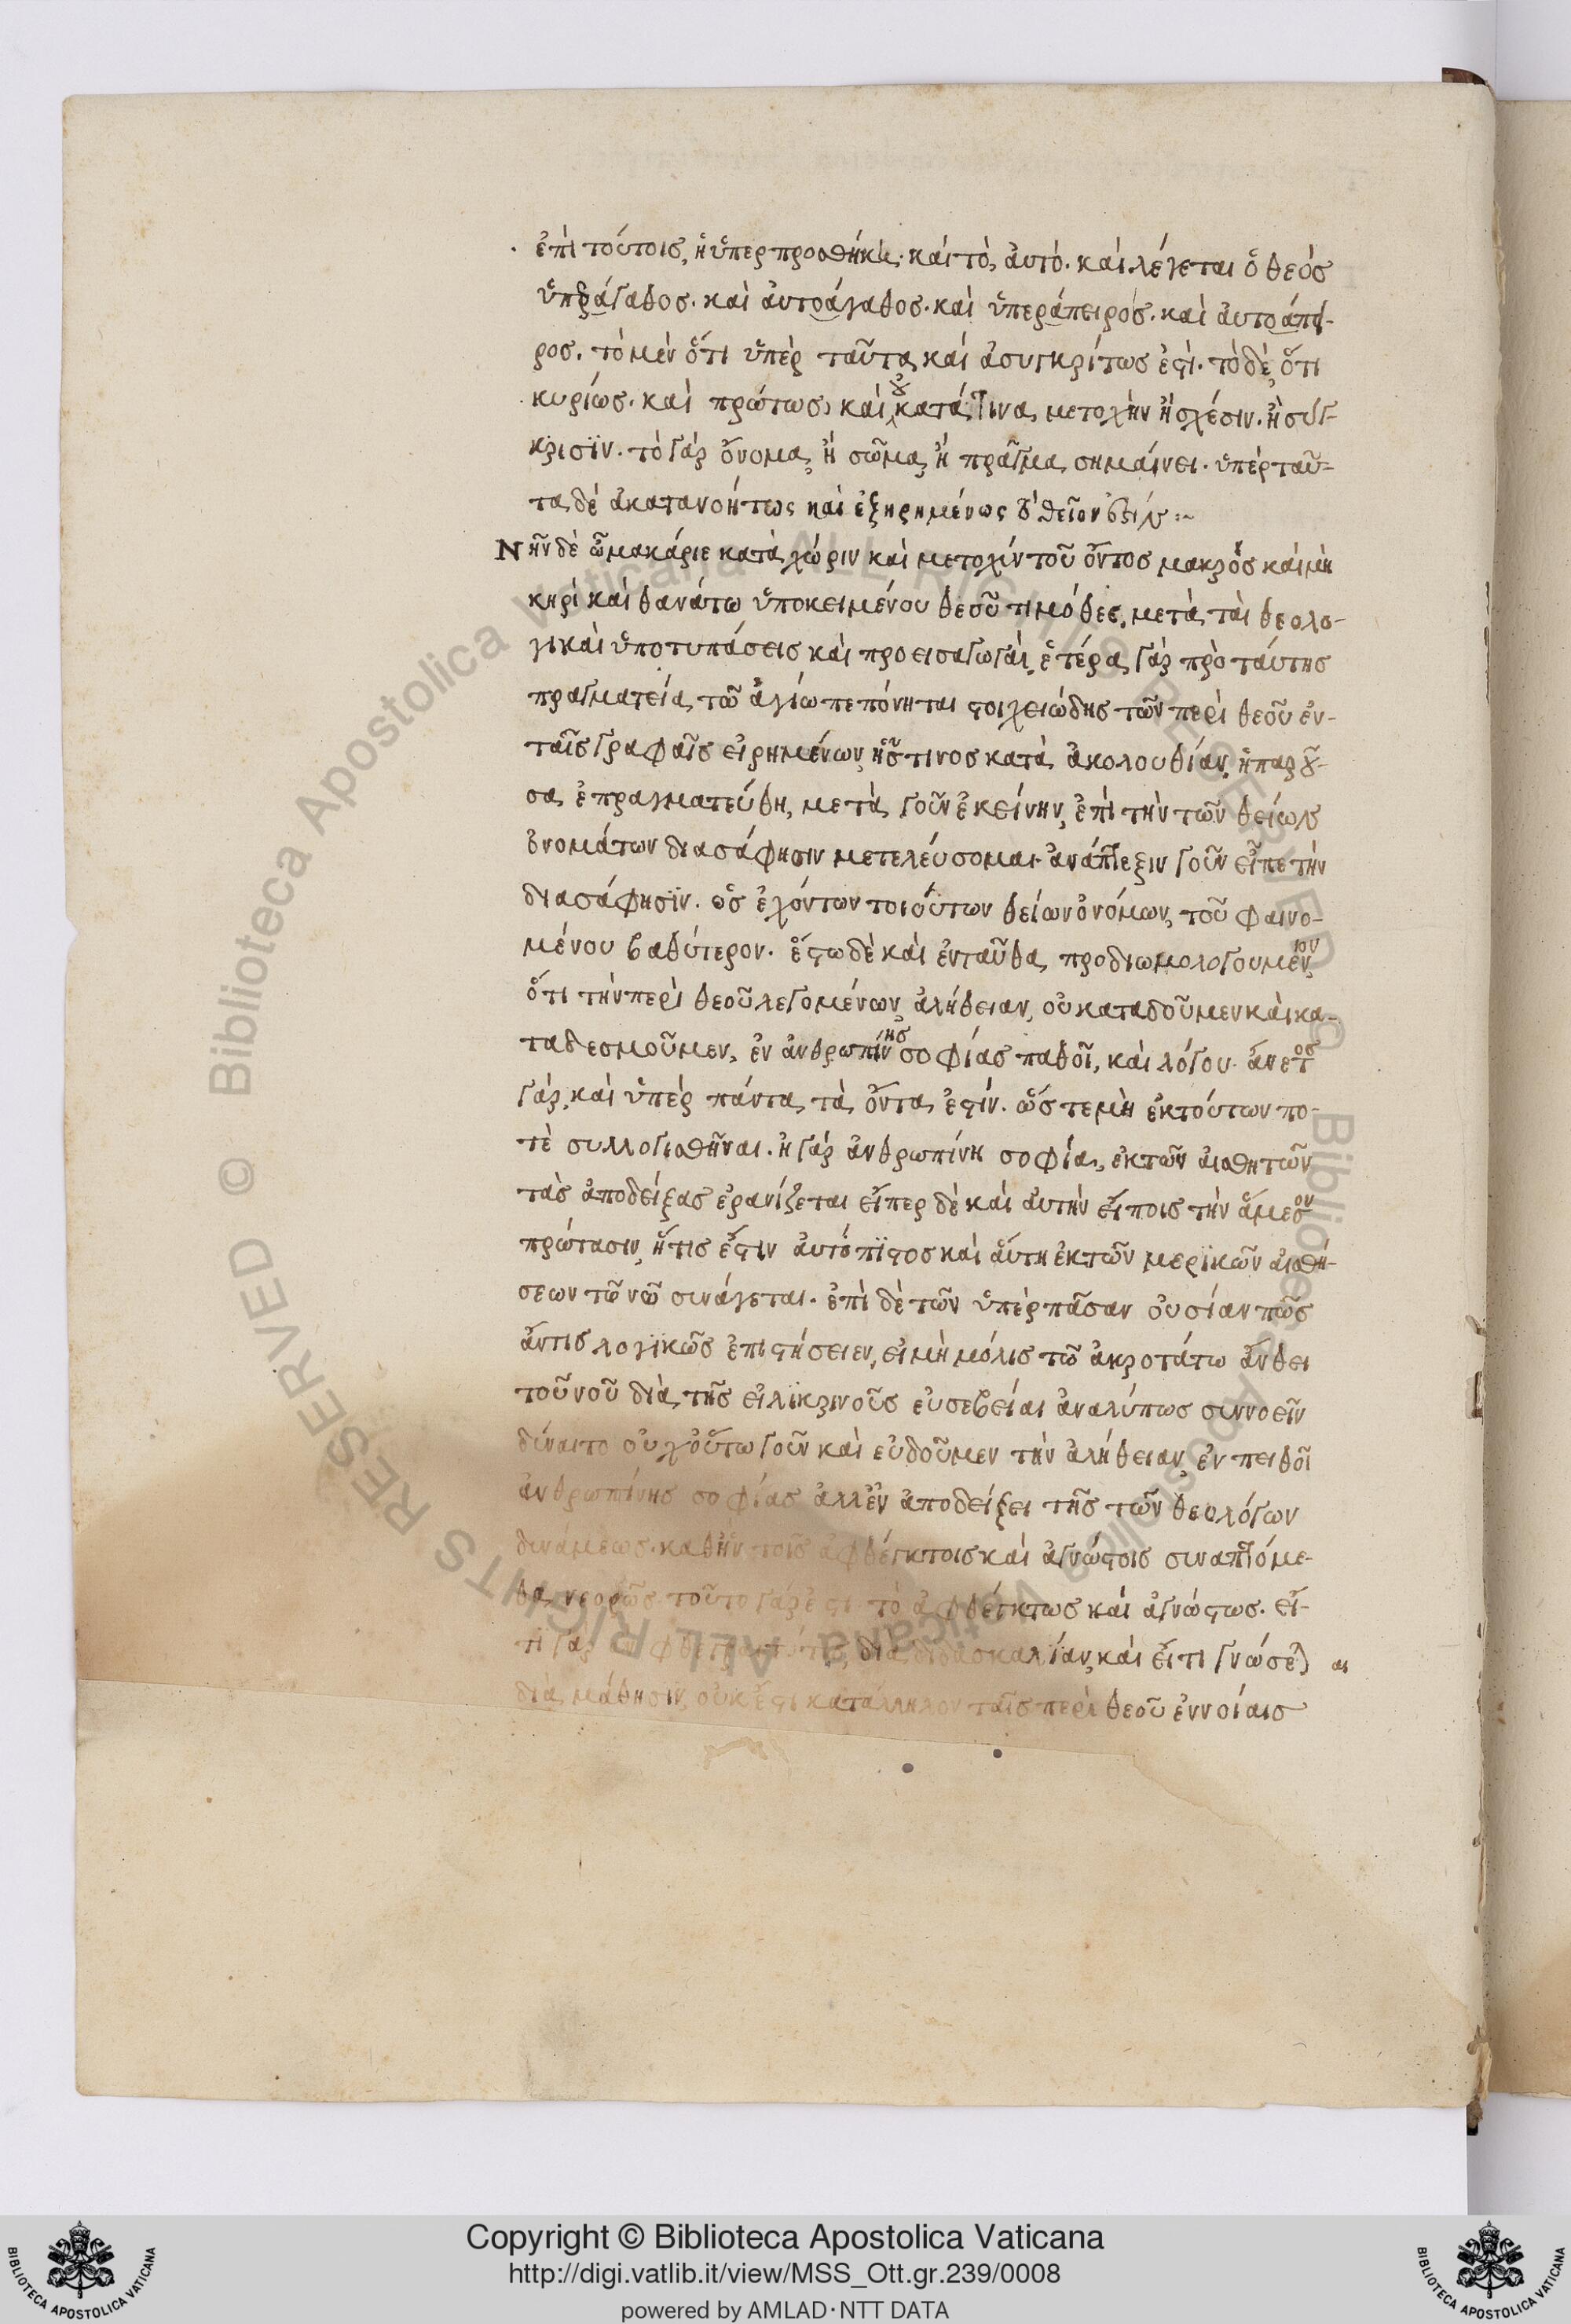 ἐπὶ τούτοις, ἡ ὑπερ προσθήκη· καὶ τὸ, αὐτό. καὶ λέγεται ὁ θεὸς
ὑπεράγαθος. καὶ αὐτοάγαθος. καὶ ὑπεράπειρος. καὶ αὐτοάπει-
ρος. τὸ μὲν ὅτι ὑπὲρ ταῦτα καὶ ἀσυγκρίτως ἐστί. τὸ δὲ, ὅτι
κυρίως. καὶ πρώτως, καὶ οὐ κατά τινα μετοχὴν ἢ σχέσιν. ἢ σύγ-
κρισϊν. τὸ γὰρ ὄνομα, ἢ σῶμα, ἢ πρᾶγμα σημαίνει. ὑπὲρ ταῦ-
τα δὲ ἀκατανοήτως καὶ ἐξηρημένως
Νῆν δὲ ὦ μακάριε κατὰ χώριν καὶ μετοχὶν τοῦ ὄντος μακρὸς καὶ μὴ
κηρὶ καὶ θανάτω ὑποκειμένου θεοῦ τιμόθεε, μετὰ ταὶ θεολο-
γικαὶ ὑποτυπάσεις καὶ προεισαγωγαὶ, ἑτέρα γὰρ πρὸ ταύτης
πραγματεία τῶ ἁγίω πεπόνηται στοιχειώδης τῶν περὶ θεοῦ ἐν-
ταῖς γραφαῖς εἰρημένων, ἧς τινος κατὰ ἀκολουθίαν, ἡ παροῦ-
σα ἐπραγματεύθη, μετὰ γοῦν ἐκείνην, ἐπὶ τὴν τῶν θείων
ὀνομάτων διασάφησιν μετελεύσομαι· ἀνάπτεξιν γοῦν εἶπε τὴν
διασάφησϊν. ὡς ἐχόντων τοιούτων θείων ὀνόμων, τοῦ φαινο-
μένου βαθύτερον. ἔστω δὲ καὶ ἐνταῦθα προδιωμολογουμένιον
ὅτι τὴν περὶ θεοῦ λεγομένων ἀλήθειαν, οὐ καταδοῦμεν καὶ κα-
ταδεσμοῦμεν, ἐν ἀνθρωπίνης σοφίας παθοῖ, καὶ λόγου· ἄνετος
γὰρ, καὶ ὑπὲρ πάντα τὰ ὄντα ἐστίν. ὥς τε μὴ ἐκ τούτων πο-
τὲ συλλογισθῆναι. ἡ γὰρ ἀνθρωπίνη σοφία, ἐκ τῶν αἰσθητῶν
τὰς ἀποδείξας ἐρανίζεται εἶπερ δὲ καὶ αὐτὴν εἴποις τὴν ἄμεσον
πρώτασιν, ἥτις ἔστιν αὐτόπϊστος καὶ αὕτη ἐκ τῶν μερϊκῶν αἰσθή-
σεων τῶ νῶ σινάγεται. ἐπὶ δὲ τῶν ὑπὲρ πᾶσαν οὐσίαν πῶς
ἄν τις λογϊκῶς ἐπιστήσειεν, εἰ μὴ μόλις τῶ ἀκροτάτω ἄνθει
τοῦ νοῦ διὰ τῆς εἰλϊκρινοῦς εὐσεβείαι ἀναλύπως συννοεῖν
δύναιτο οὐχ οὕτω γοῦν καὶ εὐδοῦμεν τὴν ἀλήθειαν, ἐν πειθοῖ
ἀνθρωπίνης σοφίας ἀλλ' ἐν ἀποδείξει τῆς τῶν θεολόγων
δινάμεως. καθ' ἣν τοῖς ἀφθέγκτοις καὶ ἀγνώστοις σιναπτόμε-
θα νεορῶς τοῦτο γάρ ἐστι τὸ ἀφθέγκτως καὶ ἀγνώστως. εἴ-
τι γὰρ διὰ διδασκαλίαν, καὶ εἴ τι γνώσει αι
δια μάθησιν, οὐκ ἔστι κατάλληλον ταῖς περὶ θεοῦ ἐννοίαις
© Biblioteca Apostolica Vaticana ALL RIGHTS RESERVED
© Biblioteca Apostolica Vaticana ALL RIGHTS RESERVED
Copyright © Biblioteca Apostolica Vaticana
http://digi.vatlib.it/view/MSS_Ott.gr.239/0008
powered by AMLAD·NTT DATA
BIBLIOTECA APOSTOLICA VATICANA
BIBLIOTECA APOSTOLICA VATICANA